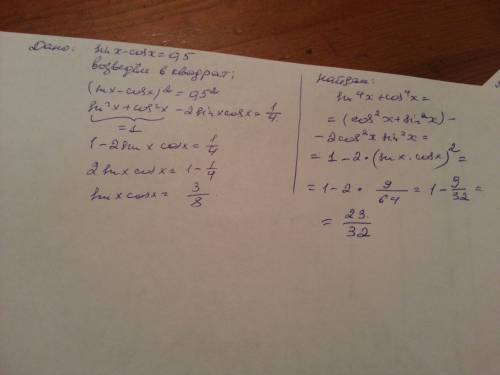 Дано: sin x - cos x = 0,5
возведём в квадрат:
(sin x - cos x)² = 0,5²
sin²x + cos²x - 2 sin x cos x = 1/4
= 1
1 - 2 sin x cos x = 1/4
2 sin x cos x = 1 - 1/4
sin x cos x = 3/8
найдём:
sin⁴x + cos⁴x =
= (cos²x + sin²x) -
- 2cos²x sin²x =
= 1 - 2 · (sin x · cos x)² =
= 1 - 2 · 9/64 = 1 - 9/32 =
= 23/32